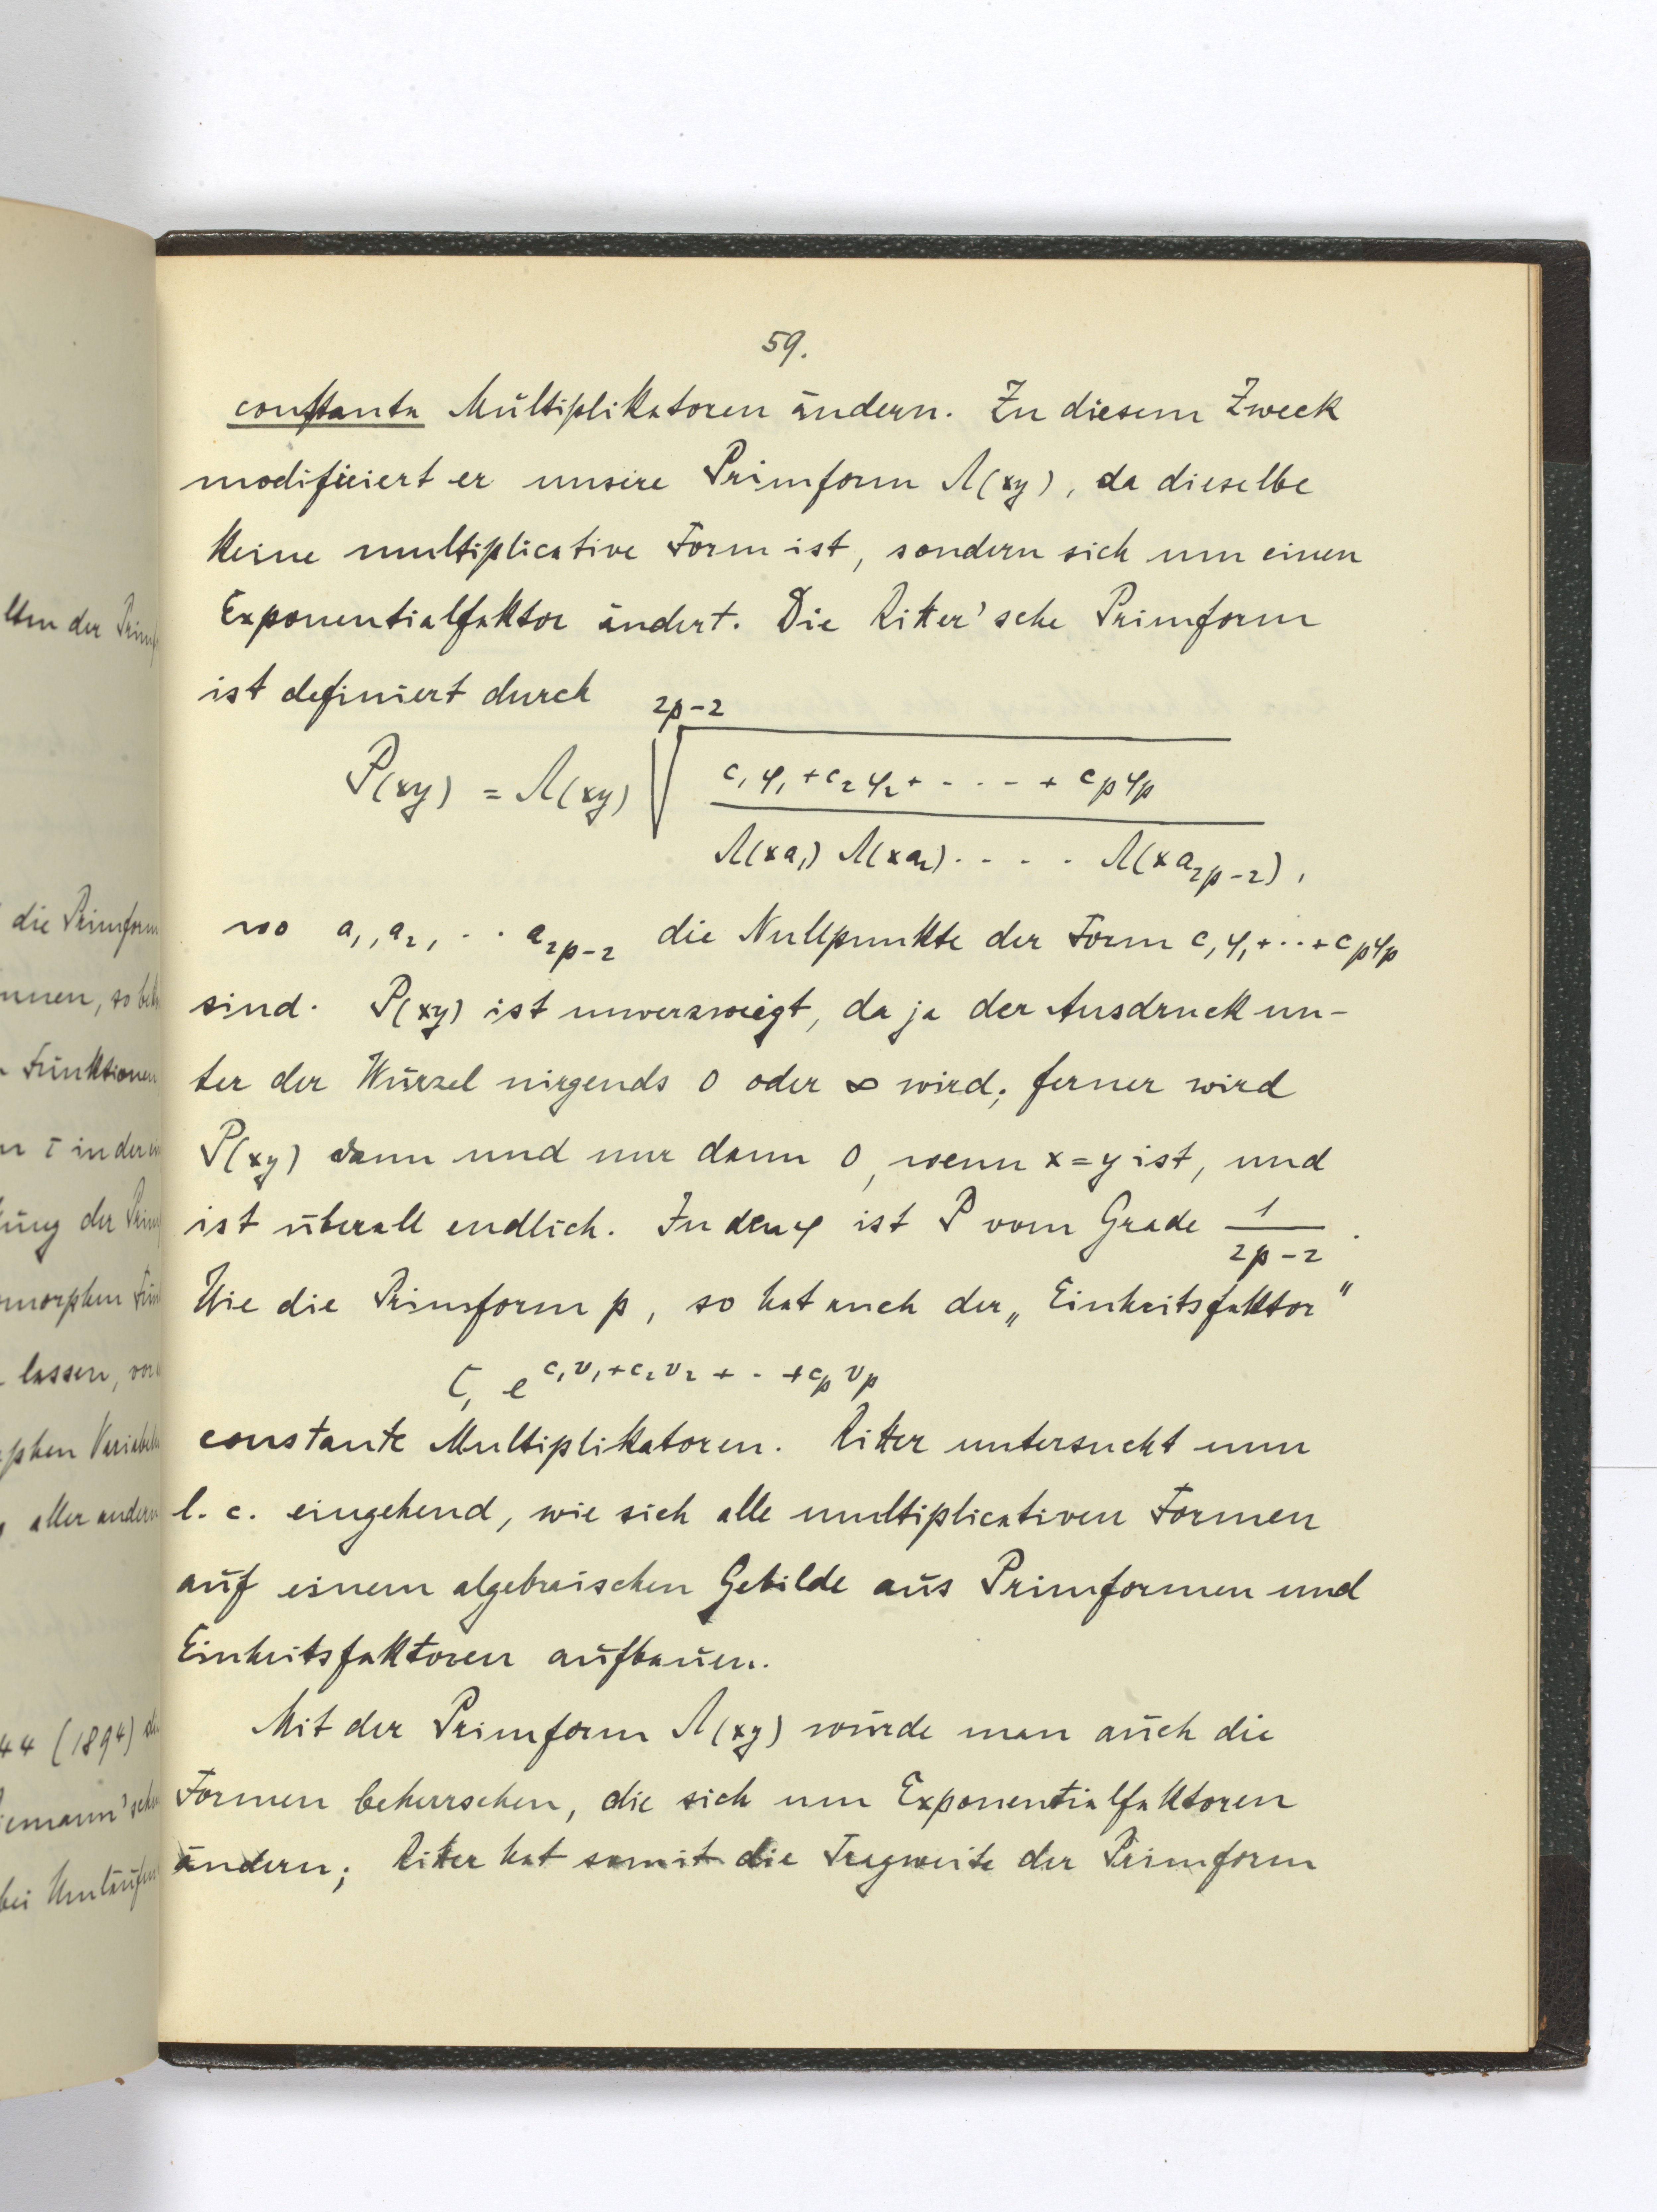 59.
constante Multiplikatoren ändern. Zu diesem Zweck
modificiert er unsere Primform Λ(xy), da dieselbe
keine multiplicative Form ist, sondern sich um einen
Exponentialfaktor ändert. Die Ritter'sche Primform
ist definiert durch
P(xy) = Λ(xy) \sqrt[2p-2]{\frac{c_1φ_1 + c_2φ_2 + ···· + c_pφ_p}{Λ(xa_1) Λ(xa_2) ···· Λ(xa_{2p-2})}},
wo a_1, a_2, ·· a_{2p-2} die Nullpunkte der Form c_1φ_1+··+c_pφ_p
sind. P(xy) ist unverzweigt, da ja der Ausdruck un-
ter der Wurzel nirgends 0 oder ∞ wird; ferner wird
P(xy) dann und nur dann 0, wenn x=y ist, und
ist überall endlich. In den φ ist P vom Grade \frac{1}{2p-2}.
Wie die Primform p, so hat auch der „Einheitsfaktor"
C_1 e^{c_1v_1+c_2v_2+··+c_pv_p}
constante Multiplikatoren. Ritter untersucht nun
l. c. eingehend, wie sich alle multiplicativen Formen
auf einem algebraischen Gebilde aus Primformen und
Einheitsfaktoren aufbauen.
Mit der Primform Λ(xy) würde man auch die
Formen beherrschen, die sich um Exponentialfaktoren
ändern; Ritter hat somit die Tragweite der Primform
der
die Primform
Funktionen
in der
der
lassen,
aller andern
44 (1894)
bei Umläufen